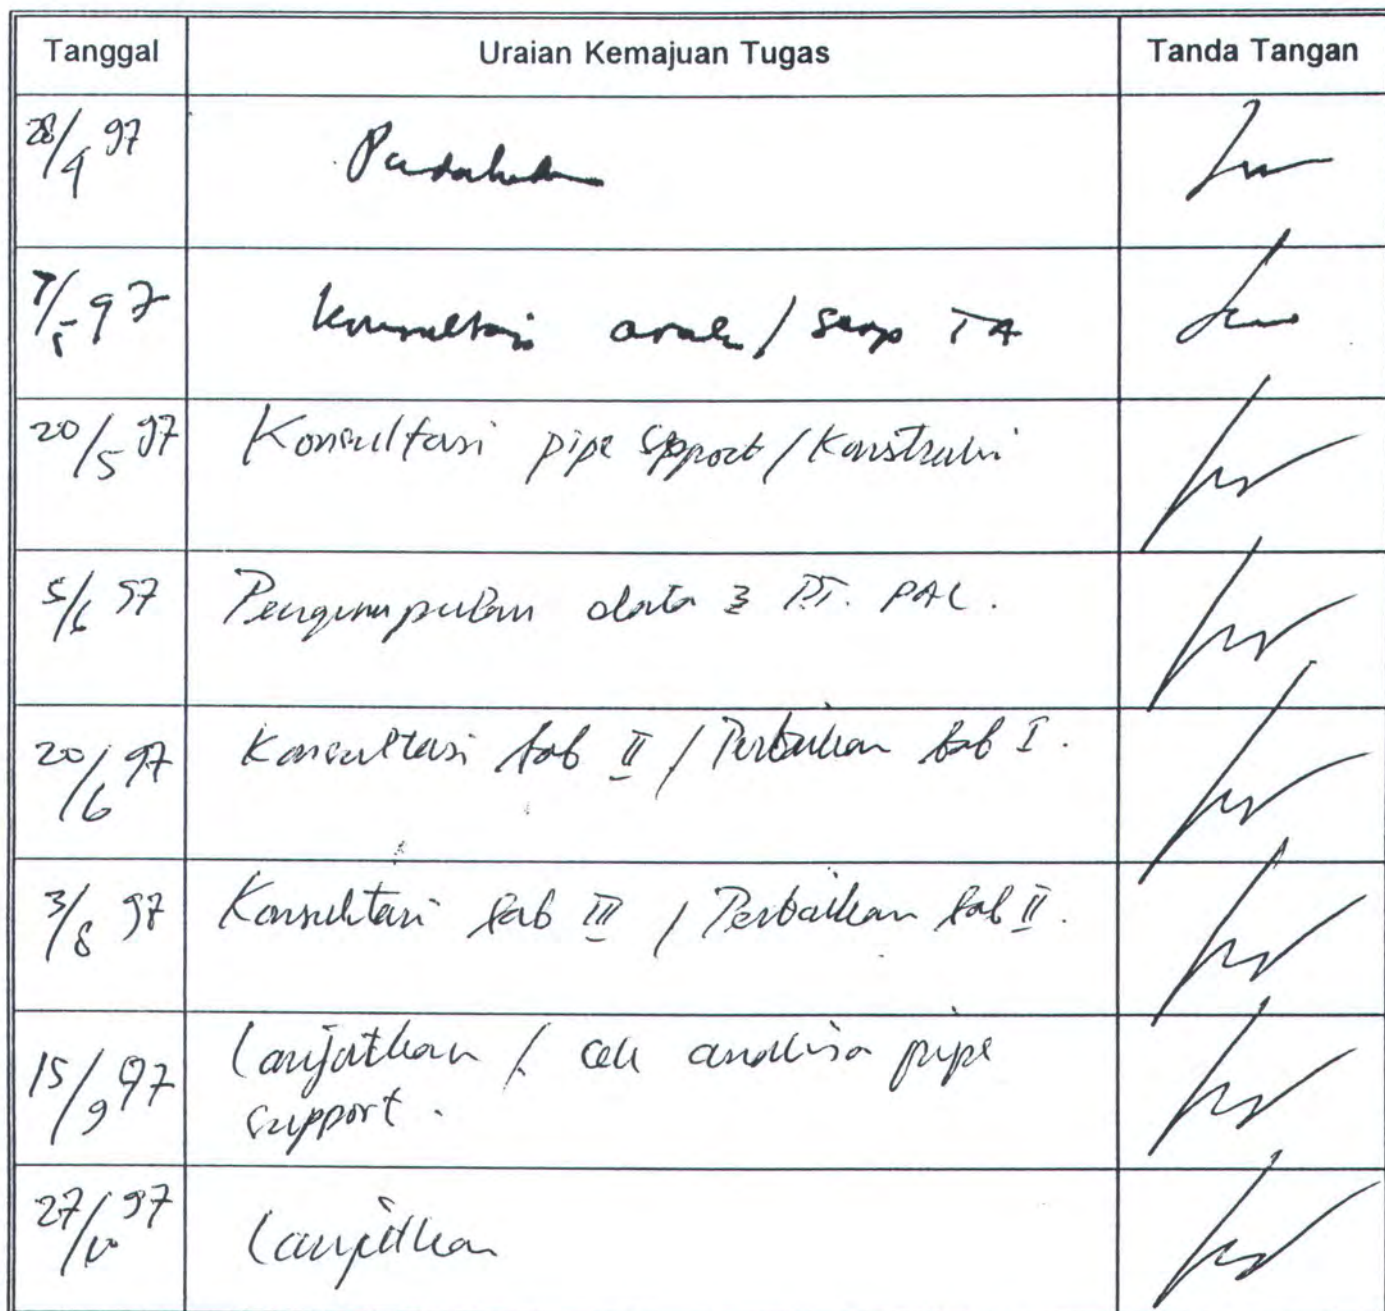 Tanggal Uraian Kemajuan Tugas Tanda Tangan
28/4 97 Pendahulu
7/5 97 Konsultasi arah / scop TA
20/5 97 Konsultasi pipe spport / Konstruksi
5/6 97 Pengumpulan data 2 PT. PAL.
20/6 97 Konsultasi bab II / Perbaikan bab I.
3/8 97 Konsultasi bab III / Perbaikan bab II.
15/9 97 Lanjutkan / cek analisa pipe
support.
27/10 97 Lanjutkan